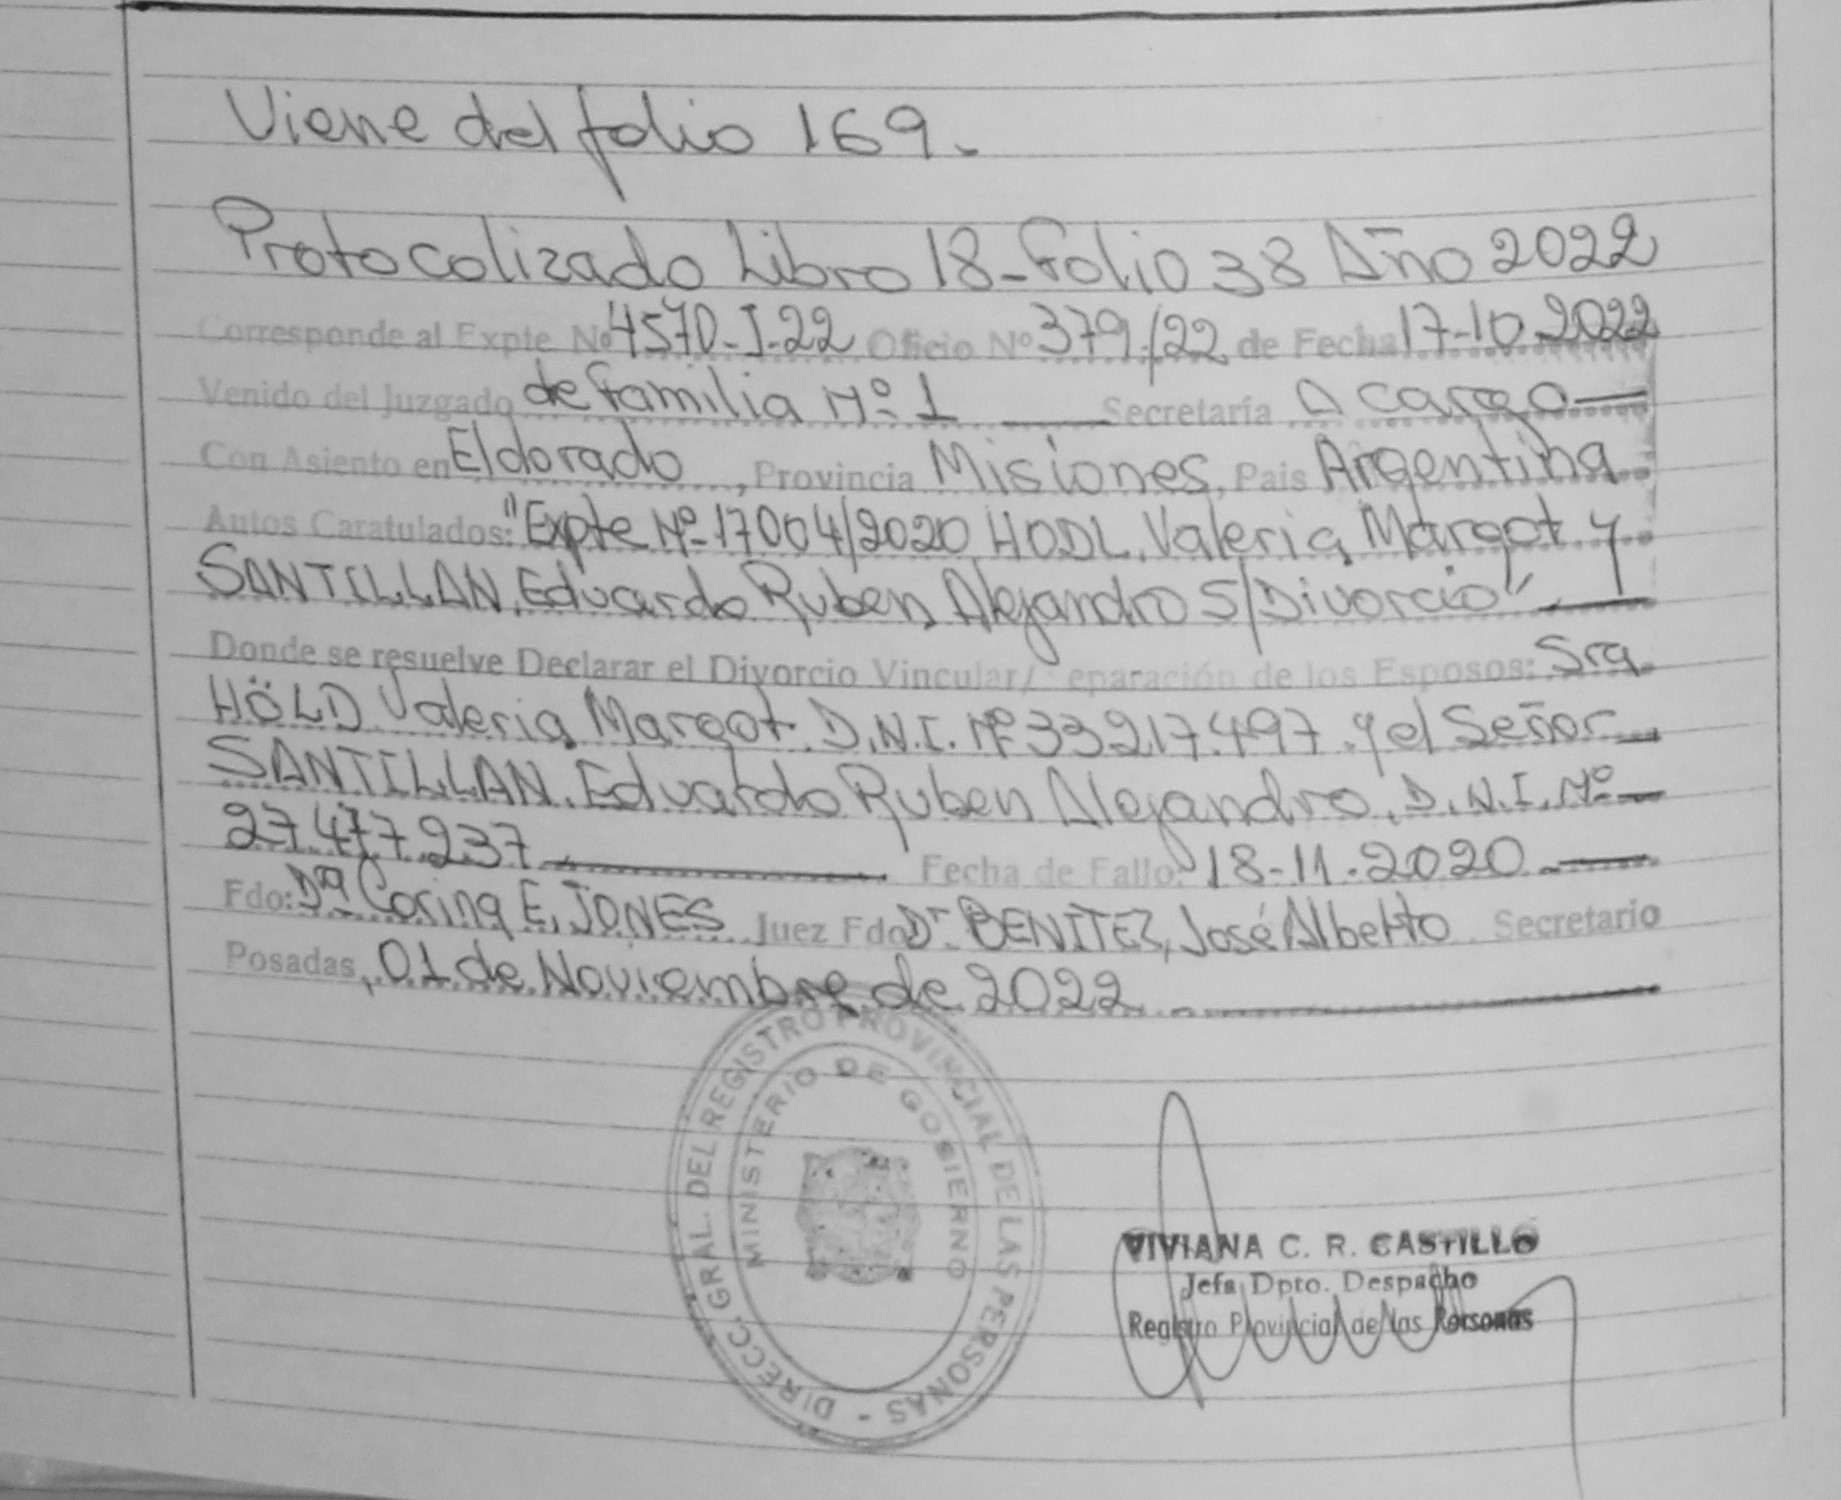 Viene del folio 169.
Protocolizado Libro 18-Folio 38 Año 2022
Corresponde al Expte Nº 4570-I-22 Oficio Nº 379/22 de Fecha 17-10.2022
Venido del Juzgado de familia Nº 1 Secretaría A cargo
Con Asiento en Eldorado, Provincia Misiones, Pais Argentina
Autos Caratulados: "Expte Nº 17004/2020 HODL, Valeria Margot y
SANTILLAN, Eduardo Ruben Alejandro S/Divorcio"
Donde se resuelve Declarar el Divorcio Vincular/ eparación de los Esposos: Sra
HÖLD Valeria Margot D.N.I. Nº 33.217.497 y el Señor
SANTILLAN, Eduardo Ruben Alejandro, D.N.I. Nº
27.477.237 Fecha de Fallo: 18-11.2020
Fdo: Dra Corina E. JONES Juez Fdo Dr. BENITEZ, José Alberto Secretario
Posadas, 01 de Noviembre de 2022
DIRECC. GRAL. DEL REGISTRO PROVINCIAL DE LAS PERSONAS -
MINISTERIO DE GOBIERNO
VIVIANA C. R. CASTILLO
Jefa Dpto. Despacho
Registro Provincial de las Personas